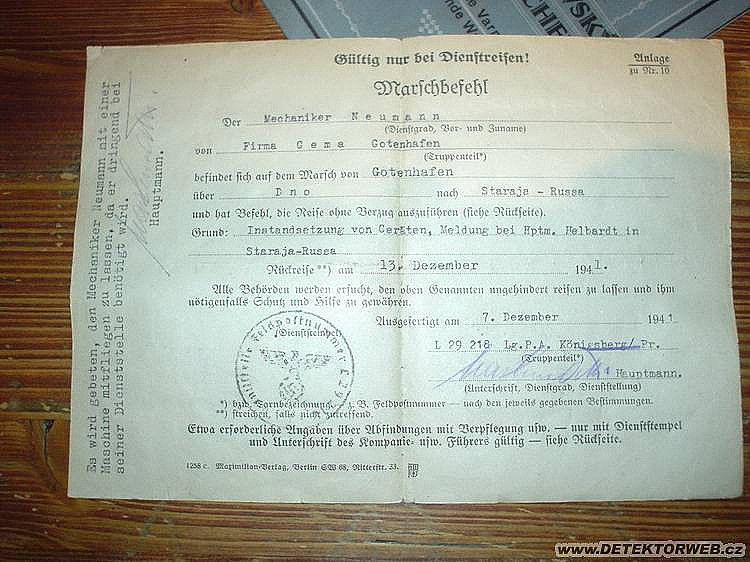 Gültig nur bei Dienstreisen!
Anlage
zu Nr. 10
Marschbefehl
Der Mechaniker Neumann
(Dienstgrad, Vor- und Zuname)
von Firma Gema Gotenhafen
(Truppenteil*)
befindet sich auf dem Marsch von Gotenhafen
über Dno nach Staraja - Russa
und hat Befehl, die Reise ohne Verzug auszuführen (siehe Rückseite).
Grund: Instandsetzung von Geräten, Meldung bei Hptm. Helbardt in
Staraja-Russa
Rückreise **) am 13. Dezember 1941.
Alle Behörden werden ersucht, den oben Genannten ungehindert reisen zu lassen und ihm
nötigenfalls Schutz und Hilfe zu gewähren.
Ausgefertigt am 7. Dezember 1941
(Dienststempel)
L 29 218 Lg.P.A. Königsberg/Pr.
(Truppenteil*)
Hauptmann.
(Unterschrift, Dienstgrad, Dienststellung)
*) bzw. Tarnbezeichnung, z. B. Feldpostnummer — nach den jeweils gegebenen Bestimmungen.
**) streichen, falls nicht zutreffend.
Etwa erforderliche Angaben über Abfindungen mit Verpflegung usw. — nur mit Dienststempel
und Unterschrift des Kompanie- usw. Führers gültig — siehe Rückseite.
1258 c. Maximilian-Verlag, Berlin SW 68, Ritterstr. 33.
Es wird gebeten, den Mechaniker Neumann mit einer
Maschine mitfliegen zu lassen, da er dringend bei
seiner Dienststelle benötigt wird.
Hauptmann.
Feldpostnummer L 29
www.DETEKTORWEB.cz